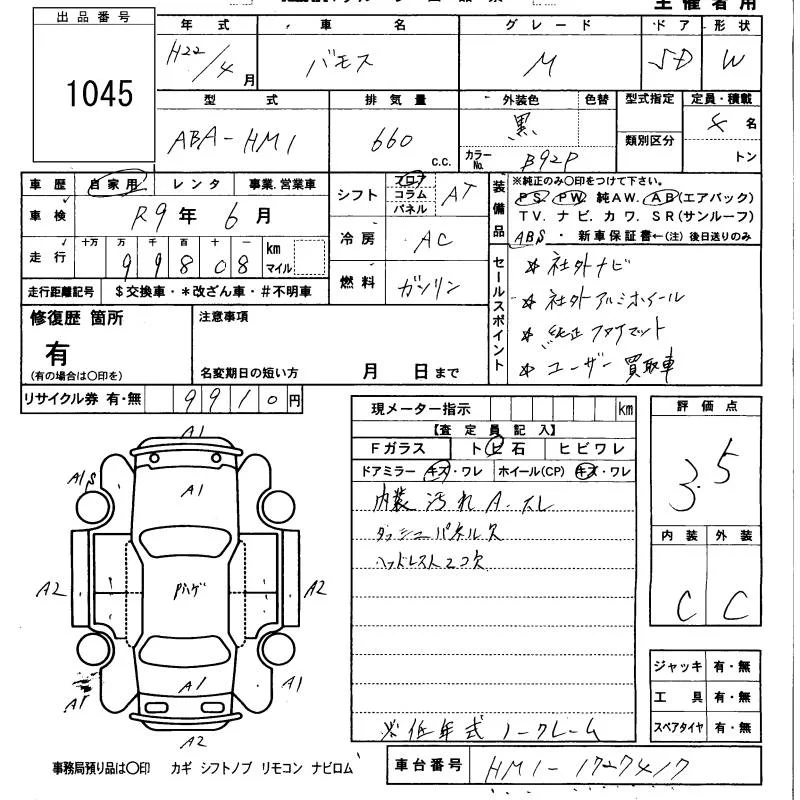 主催者用
出品番号
1045
年式 車名 グレード ドア 形状
H22/4月 バモス M 5D W
型式 排気量 外装色 色替 型式指定 定員・積載
ABA-HM1 660 c.c. 黒 カラーNo. B92P 類別区分 4名 トン
車歴 自家用 レンタ 事業.営業車
車検 R9年6月
走行 十万 万 千 百 十 一 km マイル
99808
走行距離記号 $交換車・*改ざん車・#不明車
シフト フロア コラム パネル AT
冷房 AC
燃料 ガソリン
装備品
※純正のみ○印をつけて下さい。
PS. PW. 純AW. AB(エアバック)
TV. ナビ. カワ. SR(サンルーフ)
ABS・新車保証書←(注)後日送りのみ
セールスポイント
☆ 社外ナビ
☆ 社外アルミホイール
☆ 純正フロアマット
☆ ユーザー買取車
修復歴 箇所
有
(有の場合は○印を)
注意事項
名変期日の短い方 月 日まで
リサイクル券 有・無 9910円
現メーター指示 km
【査定員記入】
Fガラス ト ビ 石 ヒビワレ
ドアミラー キズ・ワレ ホイール(CP) キズ・ワレ
内装 汚れ A.スレ
ダッシュパネル欠
ヘッドレスト2コ欠
※低年式 ノークレーム
評価点
3.5
内装 外装
C C
ジャッキ 有・無
工具 有・無
スペアタイヤ 有・無
A1
A1
A1S
A2
Pハゲ
A2
A1
A1
A1
A2
事務局預り品は○印 カギ シフトノブ リモコン ナビロム
車台番号 HM1-1727417